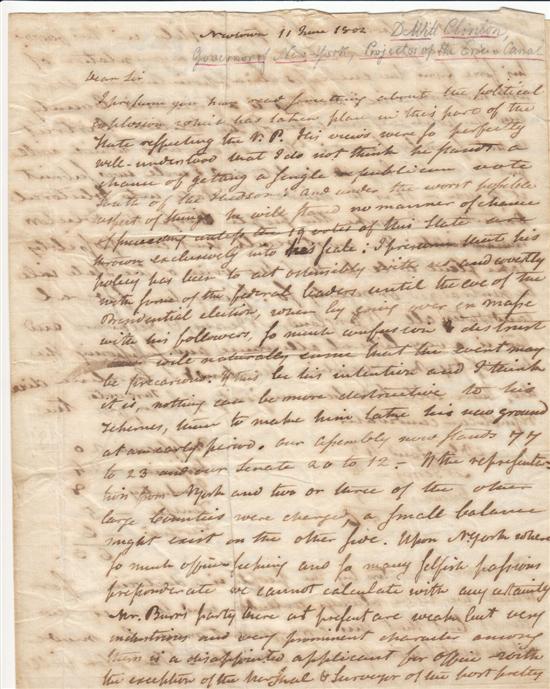 Newtown 11 June 1802
DeWitt Clinton,
Governor of New York, Projector of the Erie Canal
Dear Sir
I presume you have read something about the political
explosion which has taken place in this part of the
State respecting the V. P. His views were so perfectly
well-understood that I do not think he stands a
chance of getting a single republican vote
South of the Hudson: and under the worst possible
aspect of things he will stand no manner of chance
of succeeding unless the 19 votes of this State are
thrown exclusively into his scale. I presume that his
policy has been to act ostensibly with us and covertly
with some of the federal leaders until the eve of the
Presidential election, when by going over en masse
with his followers, so much confusion & distrust
will naturally ensue that the event may
be precarious. If this be his intention and I think
it is, nothing can be more destructive to his
schemes, than to make him take his new ground
at an early period. our assembly now stands 77
to 23 and our Senate 20 to 12 - If the representa-
tion from NYork and two or three of the other
large Counties were changed, a small balance
might exist on the other side. Upon NYork where
so much office seeking and so many selfish passions
preponderate we cannot calculate with any certainty
Mr. Burr's party here at present are weak but very
industrious and every prominent character among
them is a disappointed applicant for office with
the exception of the Marshal & Surveyor of the port